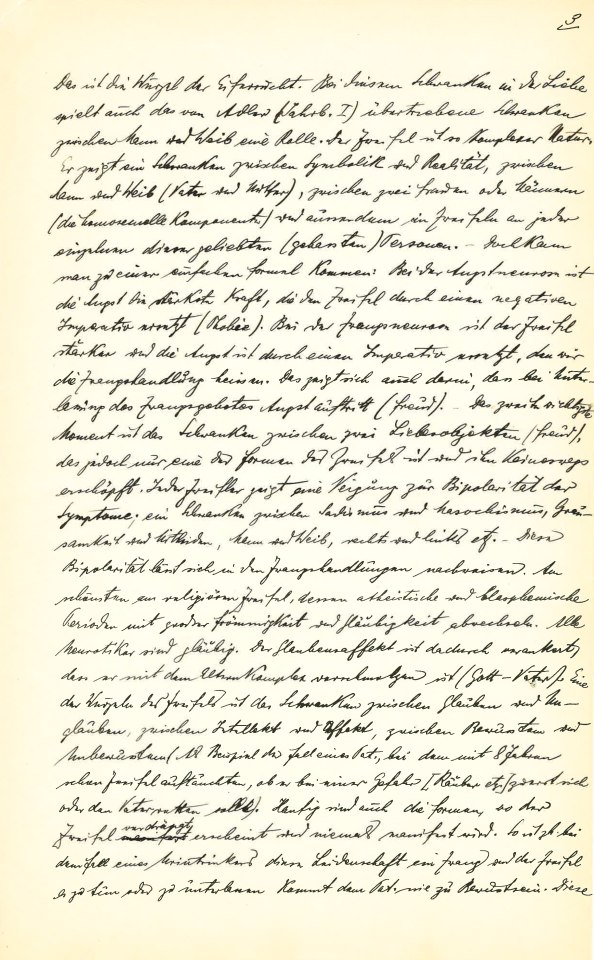 3
Das ist die Wurzel der Eifersucht. Bei diesem Schwanken in der Liebe
spielt auch das von Adler (Jahrb. I) übertriebene Schwanken
zwischen Mann und Weib eine Rolle. Der Zweifel ist so komplexer Natur.
Er zeigt ein Schwanken zwischen Symbolik und Realität, zwischen
Mann und Weib (Vater und Mutter), zwischen zwei Frauen oder Männern
(die homosexuelle Komponente) und ausserdem in Zweifeln an jeder
einzelnen dieser geliebten (gehassten) Personen. – Doch kann
man zu einer einfachen Formel kommen: Bei der Angstneurose ist
die Angst die stärkste Kraft, die den Zweifel durch einen negativen
Imperativ ersetzt (Phobie). Bei der Zwangsneurose ist der Zweifel
stärker und die Angst ist durch einen Imperativ ersetzt, den wir
die Zwangshandlung heissen. Das zeigt sich auch darin, dass bei Unter-
lassung des Zwangsgebotes Angst auftritt (Freud). – Das zweite wichtigste
Moment ist das Schwanken zwischen zwei Liebesobjekten (Freud),
das jedoch nur eine der Formen des Zweifels ist und ihn keineswegs
erschöpft. Jeder Zweifler zeigt eine Neigung zur Bipolarität der
Symptome; ein Schwanken zwischen Sadismus und Masochismus, Grau-
samkeit und Mitleiden, Mann und Weib, rechts und links etz. – Diese
Bipolarität lässt sich in den Zwangshandlungen nachweisen. Am
schönsten am religiösen Zweifel, dessen atheistische und blasphemische
Perioden mit grosser Frömmigkeit und Gläubigkeit abwechseln. Alle
Neurotiker sind gläubig. Der Glaubensaffekt ist dadurch verankert,
dass er mit dem Elternkomplex verschmolzen ist (Gott – Vater). Eine
der Wurzeln des Zweifels ist das Schwanken zwischen Glauben und Un-
glauben, zwischen Intellekt und Affekt, zwischen Bewusstem und
Unbewusstem (Als Beispiel der Fall eines Pat., bei dem mit 8 Jahren
schon Zweifel auftauchten, ob er bei einer Gefahr (Räuber etz.) zuerst sich
oder den Vater retten sollte). Häufig sind auch die Formen, wo der
Zweifel verdrängt erscheint und niemals manifest wird. So ist z.b. bei
dem Fall eines Urintrinkers diese Leidenschaft ein Zwang und der Zweifel
es zu tun oder zu unterlassen kommt dem Pat. nie zu Bewusstsein. Diese